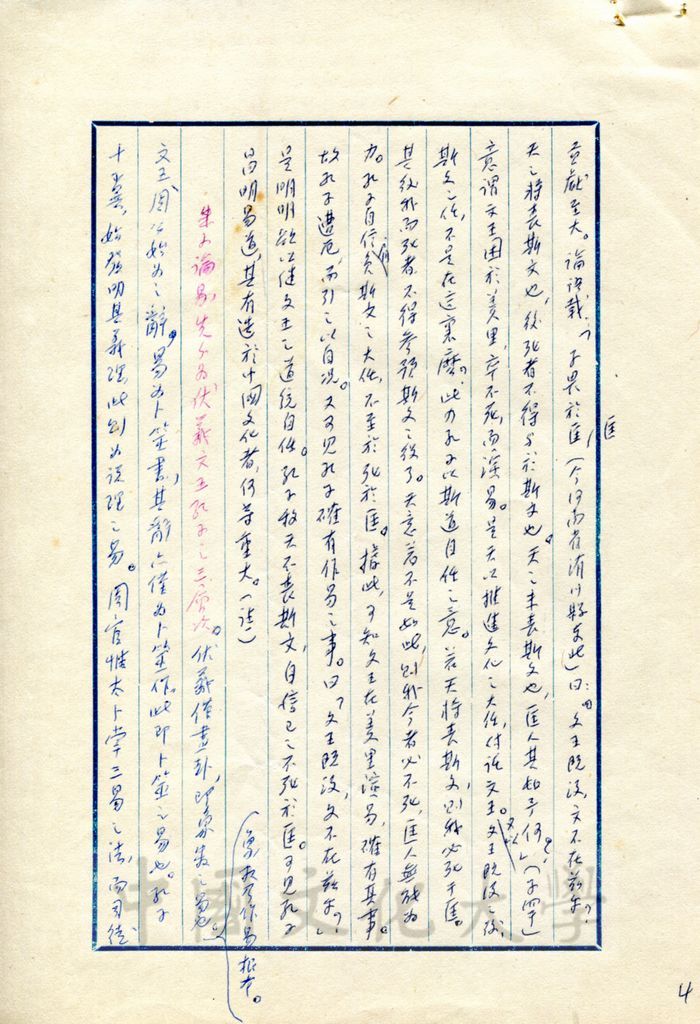 貢獻至大。論語載「子畏於匡(今河南省淯川縣東北)曰:「文王既沒,文不在茲乎?
匡
天之將喪斯文也,後死者不得與於斯文也。天之未喪斯文也,匡人其如予何?」(子罕)
意謂文王困於羑里,卒不死,而演易。是天以推進文化之大任,付託文王。文王既沒之後,
斯文之任,不是在這裏麼。此乃孔子以斯道自任之意。若天將喪斯文,則我必死于匡。
其後我而死者,不得參預斯文之役了。天意若不是如此,則我今者必不死,匡人無能為
力。孔子自信負斯文之大任,不至於死於匡。據此,可知文王在羑里演易,確有其事。
故孔子遭厄,而引之以自況。又可見孔子確有作易之事。曰「文王既沒,文不在茲乎?」
是明明欲以繼文王之道統自任。孔子教天不喪斯文,自信己之不死於匡。可見孔子
昌明易道,其有造於中國文化者,何等重大。(註一)
朱子論易,先分為伏羲文王孔子之三層次。伏羲僅畫卦,即象數之易也。
(象數乃作易根本。)
文王周公始為之辭。易為卜筮書,其辭亦僅為卜筮作。此即卜筮之易也。孔子
十翼,始發明其義理,此則為說理之易。周官惟太卜掌三易之法,而司徒
中國文化大學
4